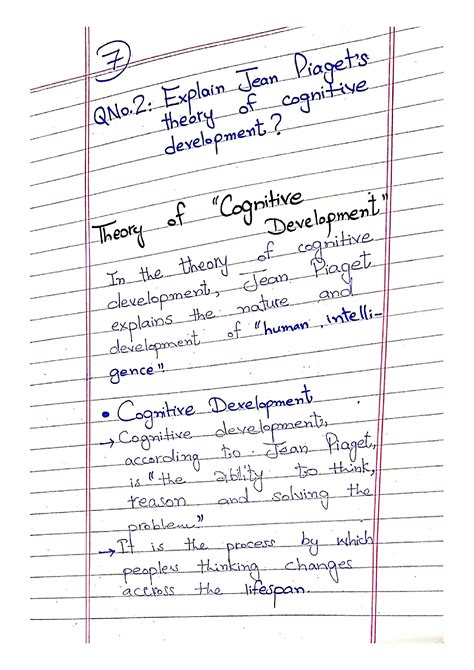 7
QNo.2: Explain Jean Piaget's
theory of cognitive
development?
Theory of "Cognitive
Development"
In the theory of cognitive
development, Jean Piaget
explains the nature and
development of "human intelli-
gence".
• Cognitive Development
→ Cognitive developments,
according to Jean Piaget,
is "the ability to think,
reason and solving the
problem."
→ It is the process by which
peoples thinking changes
accross the lifespan.